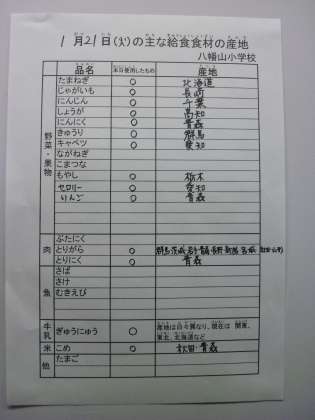 1月21日(火)の主な給食食材の産地
八幡山小学校
品名 本日使用したもの 産地
野菜・果物
たまねぎ ○ 北海道
じゃがいも ○ 長崎
にんじん ○ 千葉
しょうが ○ 高知
にんにく ○ 青森
きゅうり ○ 群馬
キャベツ ○ 愛知
ながねぎ
こまつな
もやし ○ 栃木
セロリー ○ 愛知
りんご ○ 青森
肉
ぶたにく
とりがら ○ 群馬 茨城 岩手 青森 長野 新潟 宮城
とりにく ○ 青森
魚
さば
さけ
むきえび
牛乳 ぎゅうにゅう ○ 産地は日々異なり、現在は 関東、
東北、北海道など
米 こめ ○ 秋田 青森
他 たまご